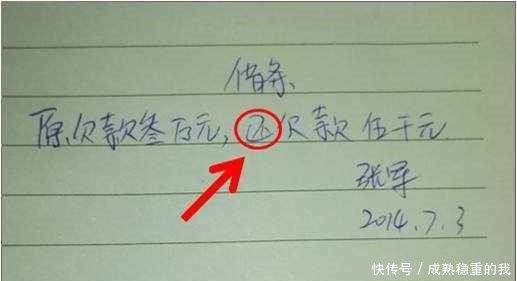 借条
原欠款叁万元,还欠款伍千元
张军
2014.7.3
快传号 / 成熟稳重的我